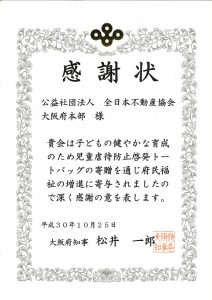 感謝状
公益社団法人　全日本不動産協会
大阪府本部　様
貴会は子どもの健やかな育成
のため児童虐待防止啓発トー
トバッグの寄贈を通じ府民福
祉の増進に寄与されましたの
で深く感謝の意を表します。
平成30年10月25日
大阪府知事　松井　一郎